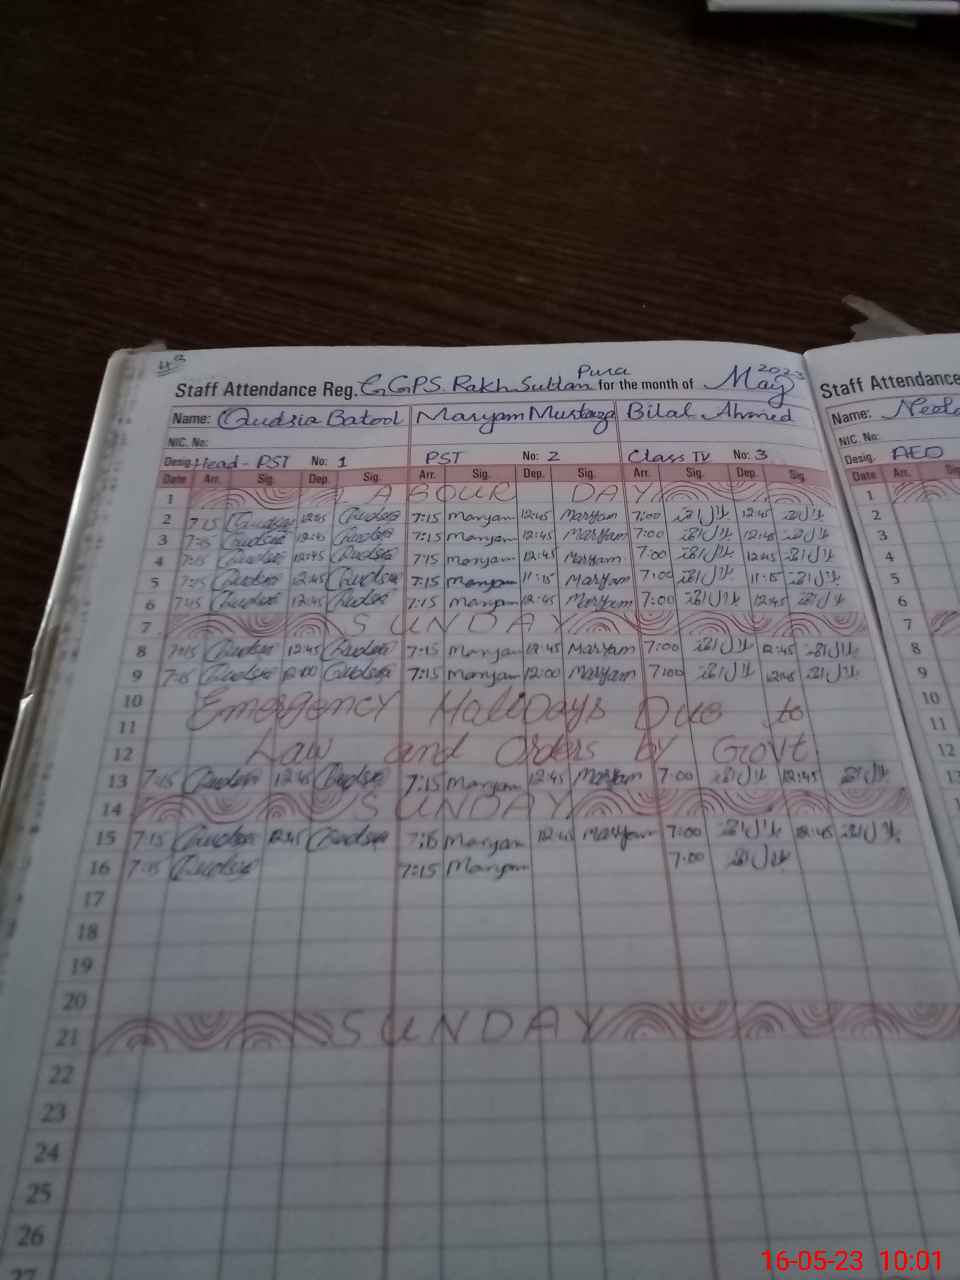 Pura 2023
Staff Attendance Reg. G.G.P.S. Rakh Sultan for the month of May
Name: Qudsia Batool Maryam Mustafa Bilal Ahmed
NIC. No:
Desig. Head - PST No: 1 PST No: 2 Class IV No: 3
Date Arr. Sig. Dep. Sig. Arr. Sig. Dep. Sig. Arr. Sig. Dep. Sig.
1 LABOUR DAY
2 7:15 Qudsia 12:45 Qudsia 7:15 Maryam 12:45 Maryam 7:00 12:45
3 7:15 Qudsia 12:45 Qudsia 7:15 Maryam 12:45 Maryam 7:00 12:45
4 7:15 Qudsia 12:45 Qudsia 7:15 Maryam 12:45 Maryam 7:00 12:45
5 7:15 Qudsia Qudsia 7:15 Maryam 11:15 Maryam 7:00 11:15
6 Qudsia 12:45 Qudsia 7:15 Maryam 12:45 Maryam 7:00 12:45
7 SUNDAY
8 7:15 Qudsia 12:45 Qudsia 7:15 Maryam 12:45 Maryam 7:00 12:45
9 7:15 Qudsia 12:00 Qudsia 7:15 Maryam 12:00 Maryam 7:00
10 Emergency Holidays Due to
11
12 Law and Orders by Govt
13 7:15 Qudsia 12:45 Qudsia 7:15 Maryam 12:45 Maryam 7:00 12:45
14 SUNDAY
15 7:15 Qudsia 12:45 Qudsia 7:15 Maryam 12:45 Maryam 7:00 12:45
16 7:15 Qudsia 7:15 Maryam 7:00
17
18
19
20
21 SUNDAY
22
23
24
25
26
27
Staff Attendance
Name:
NIC. No:
Desig. AEO
Date Arr.
1
2
3
4
5
6
7
8
9
10
11
12
13
16-05-23 10:01